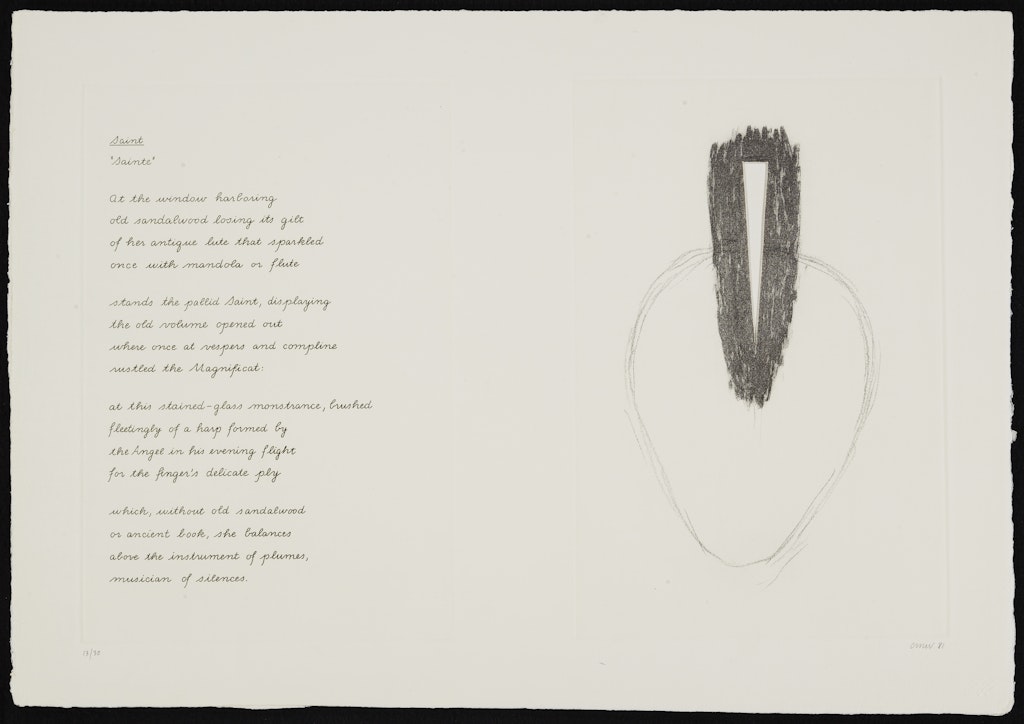 Saint
"Sainte"
At the window harboring
old sandalwood losing its gilt
of her antique lute that sparkled
once with mandola or flute
stands the pallid Saint, displaying
the old volume opened out
where once at vespers and compline
rustled the Magnificat:
at this stained-glass monstrance, brushed
fleetingly of a harp formed by
the Angel in his evening flight
for the finger's delicate ply
which, without old sandalwood
or ancient book, she balances
above the instrument of plumes,
musician of silences.
13/30